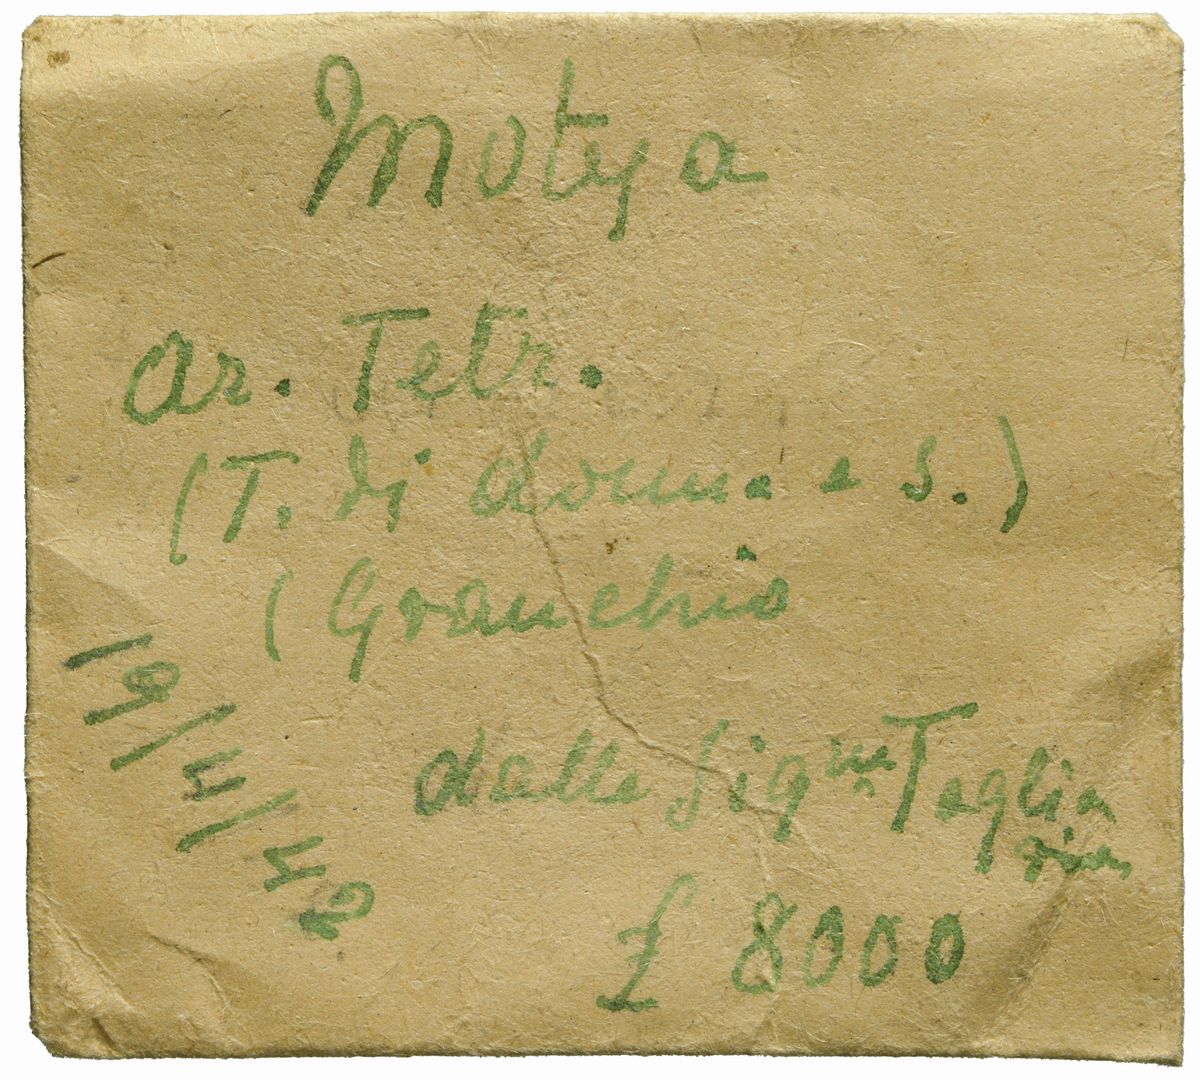 Motya
ar. Tetr.
(T. di donna a s.)
(Granchio
dalle Sig.ne Taglia
vini
£ 8000